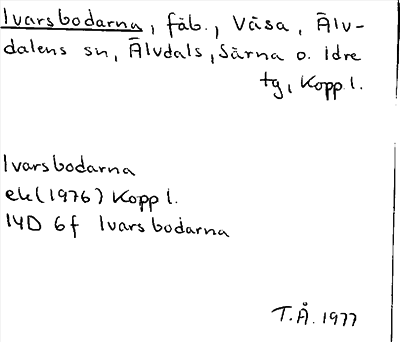 Ivarsbodarna, fäb., Våsa, Älv-
dalens sn, Älvdals, Särna o. Idre
tg, Kopp l.
Ivarsbodarna
ek (1976) Kopp l.
14D 6f Ivarsbodarna
T.Å. 1977